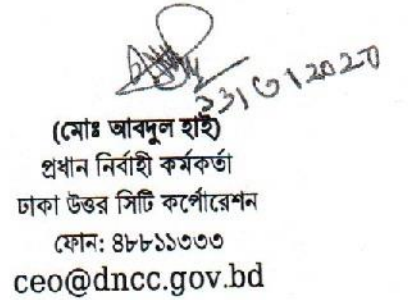 (মোঃ আবদুল হাই)
প্রধান নির্বাহী কর্মকর্তা
ঢাকা উত্তর সিটি কর্পোরেশন
ফোন: ৪৮৮১১৩৩৩
ceo@dncc.gov.bd